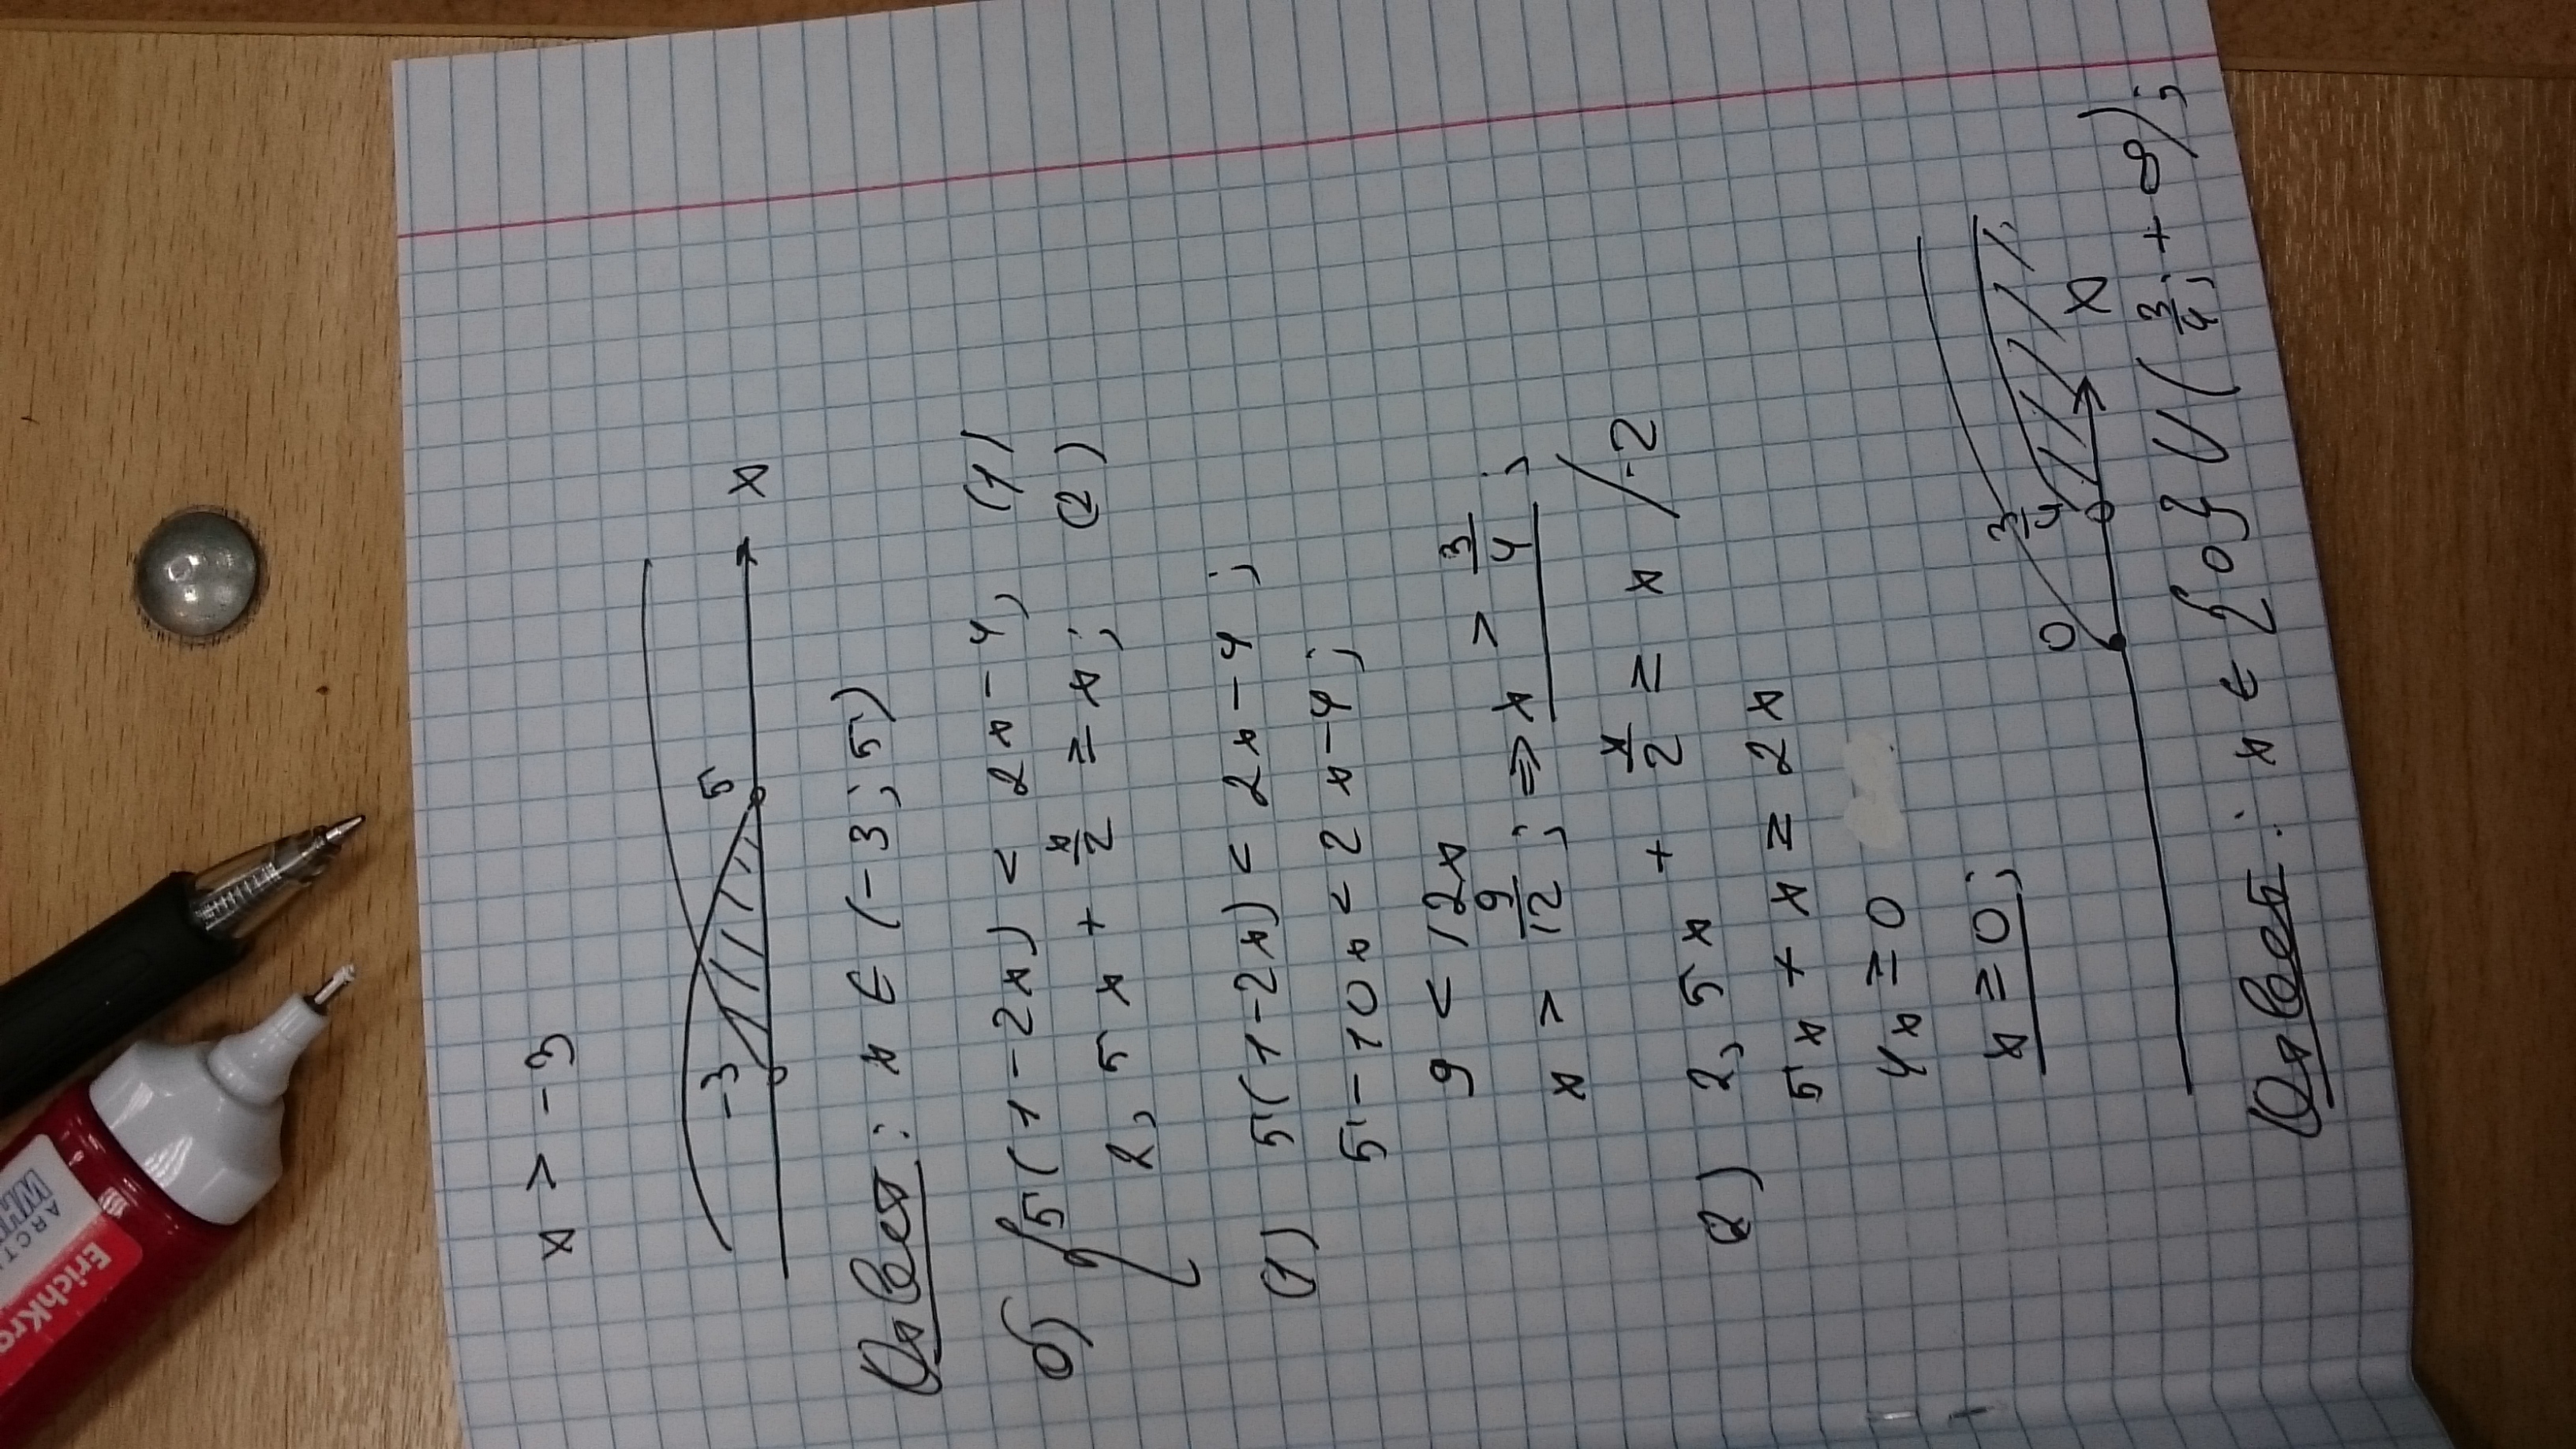 x > -3
-3 5 x
Ответ: x ∈ (-3; 5)
б) { 5(1-2x) < 2x-4, (1)
2,5x + x/2 ≥ x; (2)
(1) 5(1-2x) < 2x-4;
5-10x < 2x-4;
9 < 12x
x > 9/12; ⇒ x > 3/4;
2) 2,5x + x/2 ≥ x /·2
5x + x ≥ 2x
4x ≥ 0
x ≥ 0;
0 3/4 x
Ответ: x ∈ {0} ∪ (3/4; +∞);
ErichKr
ARCTI